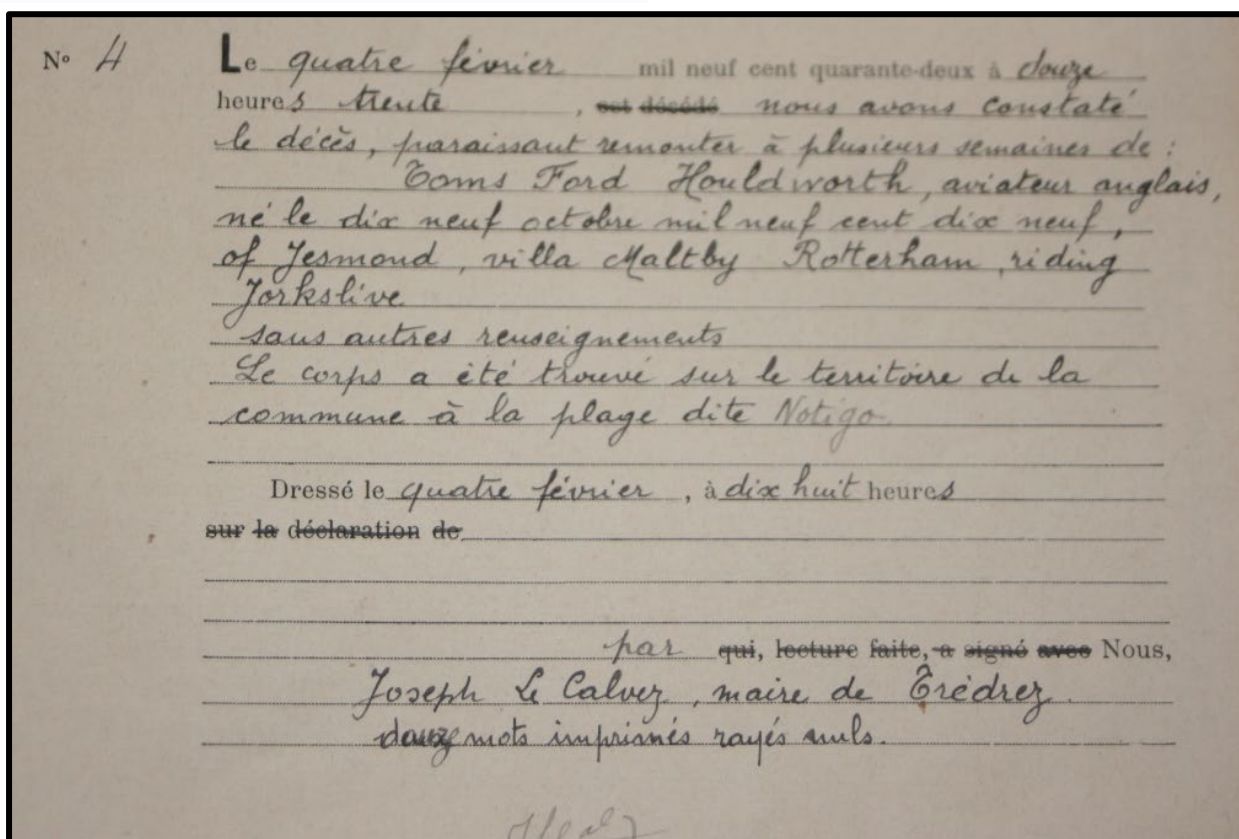 N° 4
Le quatre février mil neuf cent quarante-deux à douze
heures trente, est décédé nous avons constaté
le décès, paraissant remonter à plusieurs semaines de :
Toms Ford Houldworth, aviateur anglais,
né le dix neuf octobre mil neuf cent dix neuf,
of Jesmond, villa Maltby Rotterham, riding
Jorkslive
sans autres renseignements
Le corps a été trouvé sur le territoire de la
commune à la plage dite Notigo
Dressé le quatre février, à dix huit heures
sur la déclaration de
par qui, lecture faite, a signé avec Nous,
Joseph Le Calvez, maire de Trédrez.
douze mots imprimés rayés nuls.